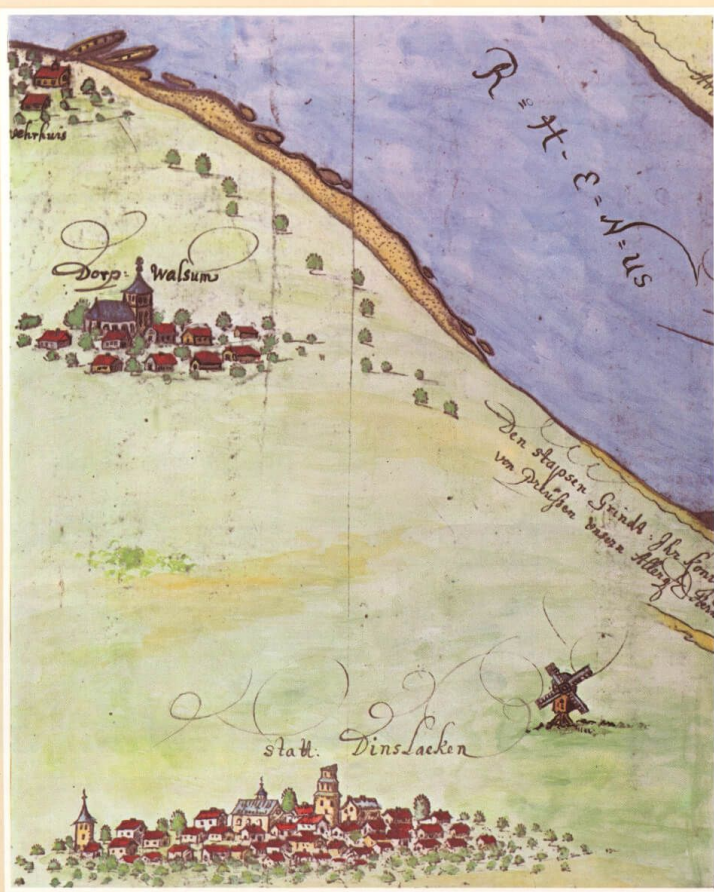 R = H - E = N = us
Dorp: Walsum
Den stapsen Grindt. Ihr
von Preüßen unsern Allerg
statt: Dinslaeken